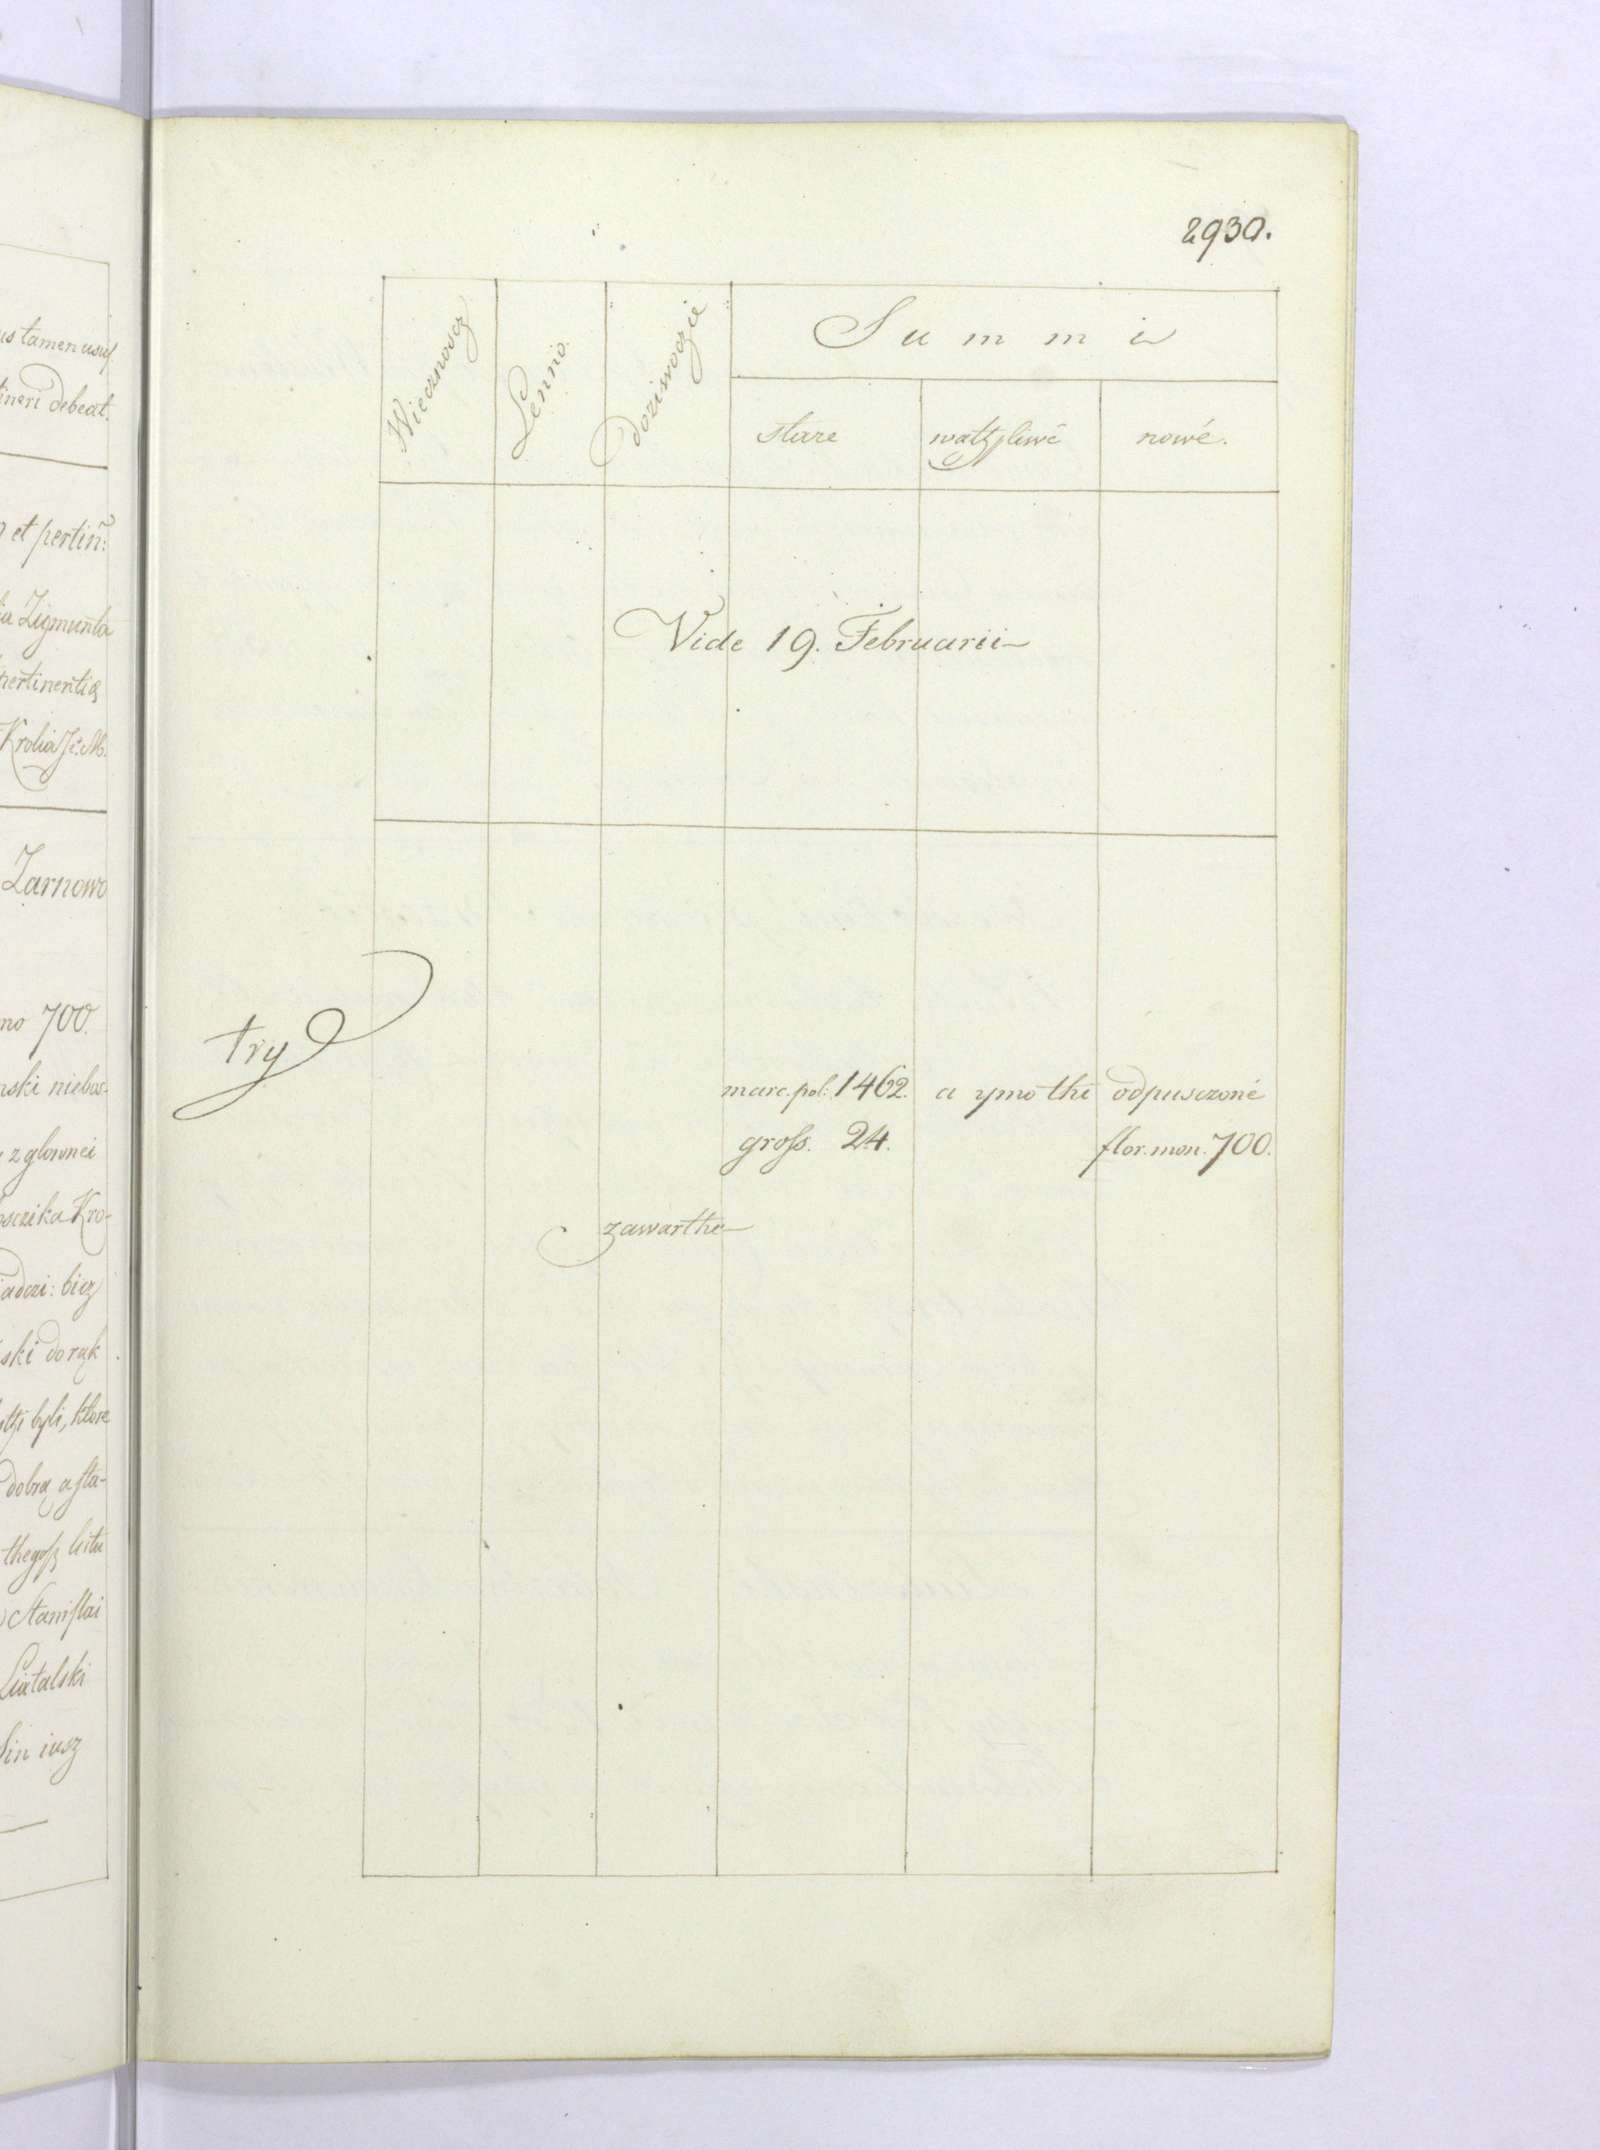 us tamen usuf
tineri debeat.
et pertin:
ia Zigmunta
pertinentia
Krolia Je. M.
Zarnowo
no 700.
nski niebos-
z glownei
osczika Kro-
iadczi: bicz
ski do rąk
byli, ktore
dobra a sta-
thegosz listu
Stanislai
Liatalski
sin iusz
2930.
Wiecznoscz
Lenno.
doziwoczie
Summi
stare
wątpliwé
nowé.
Vide 19. Februarii
try
marc. pol: 1462. a ymo thi odpusczoné
gross. 24. flor. mon. 700.
zawarthe